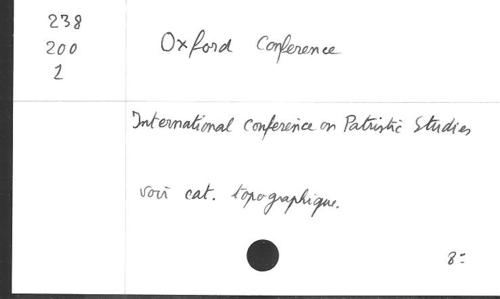 238
200
2
Oxford Conference
International Conference on Patristic Studies
voir cat. topographique.
8=